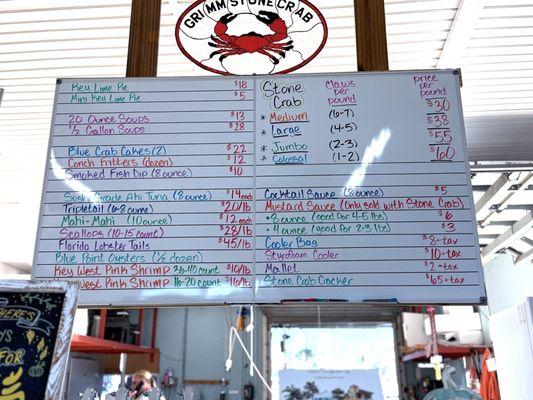 GRIMM STONE CRAB
Key Lime Pie $18
Mini Key Lime Pie $5
20 Ounce Soups $13
1/2 Gallon Soups $28
Blue Crab Cakes (2) $22
Conch Fritters (dozen) $12
Smoked Fish Dip (8 ounce) $10
Sushi Grade Ahi Tuna (8 ounce) $14 each
Tripletail (6-8 ounce) $20/lb
Mahi-Mahi (10 ounce) $12 each
Scallops (10-15 count) $28/lb
Florida Lobster Tails $45/lb
Blue Point Oysters (1/2 dozen)
Key West Pink Shrimp 36-40 count $10/lb
West Pink Shrimp 16-20 count $16/lb
Stone Crab
Claws per pound
price per pound
* Medium (6-7) $30
* Large (4-5) $38
* Jumbo (2-3) $55
* Colossal (1-2) $60
Cocktail Sauce (8 ounce) $5
Mustard Sauce (Only sold with Stone Crab)
• 8 ounce (good for 4-5 lbs) $6
• 4 ounce (good for 2-3 lbs) $3
Cooler Bag $8+tax
Styrofoam Cooler $10+tax
Mallet $2+tax
Stone Crab Cracker $65+tax
FOR